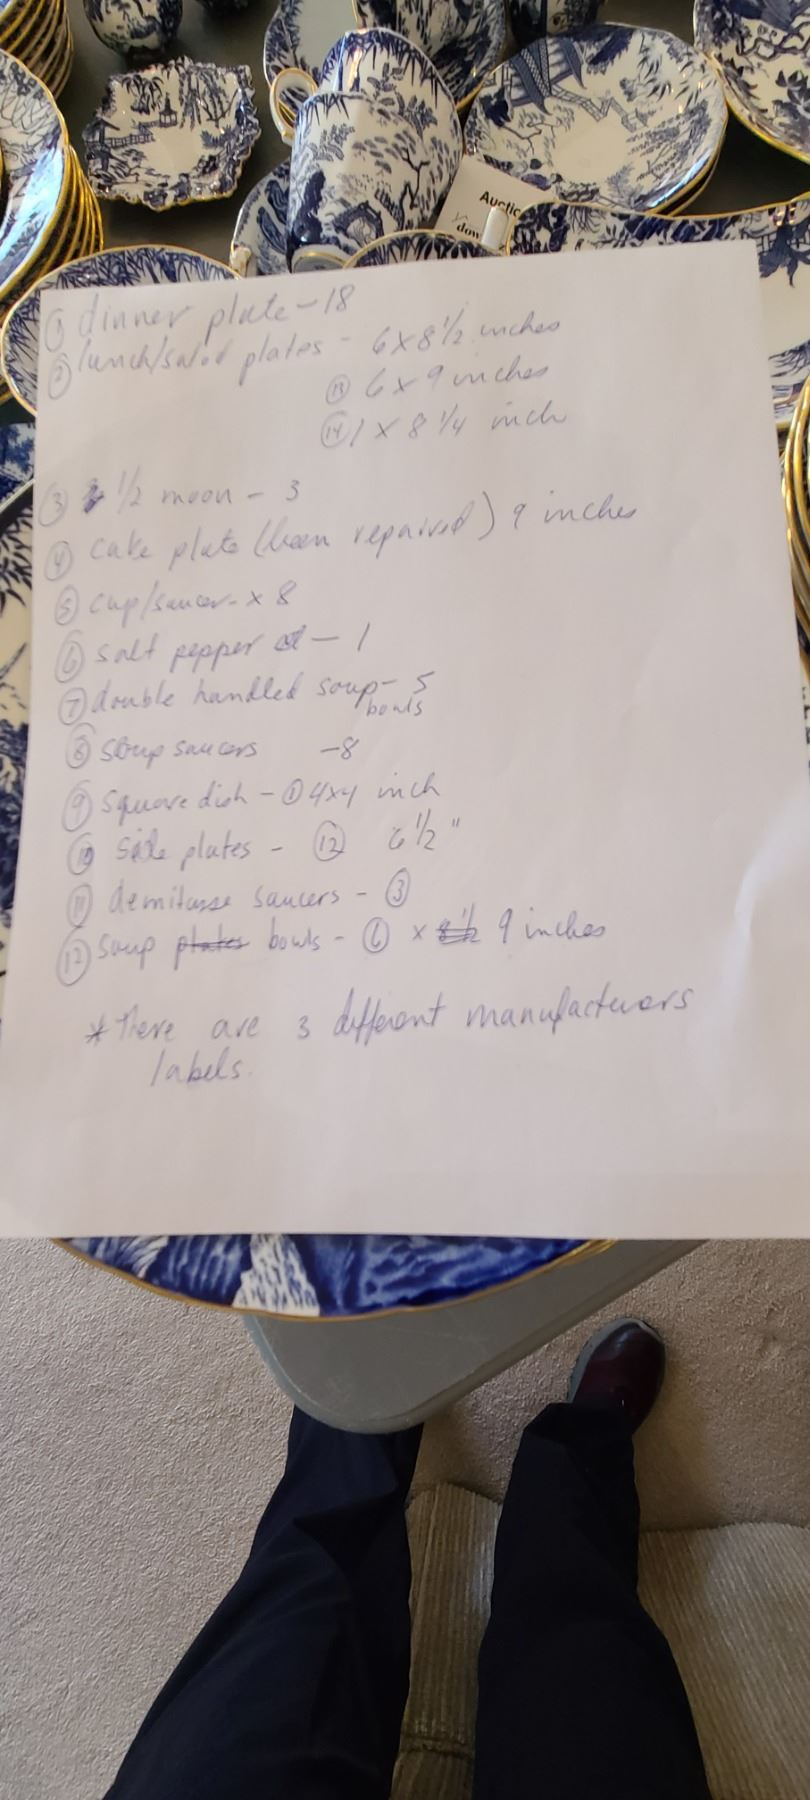 Auctio
dow
① dinner plate - 18
② lunch/salad plates - 6 x 8 1/2 inches
⑬ 6 x 9 inches
⑭ 1 x 8 1/4 inch
③ 1/2 moon - 3
④ cake plate (been repaired) 9 inches
⑤ cup/saucer - x 8
⑥ salt pepper - 1
⑦ double handled soup - 5
bowls
⑧ soup saucers - 8
⑨ square dish - ① 4x4 inch
⑩ side plates - ⑫ 6 1/2 "
⑪ demitasse saucers - ③
⑫ soup plates bowls - ⑥ x 8 1/2 9 inches
* There are 3 different manufacturers
labels.